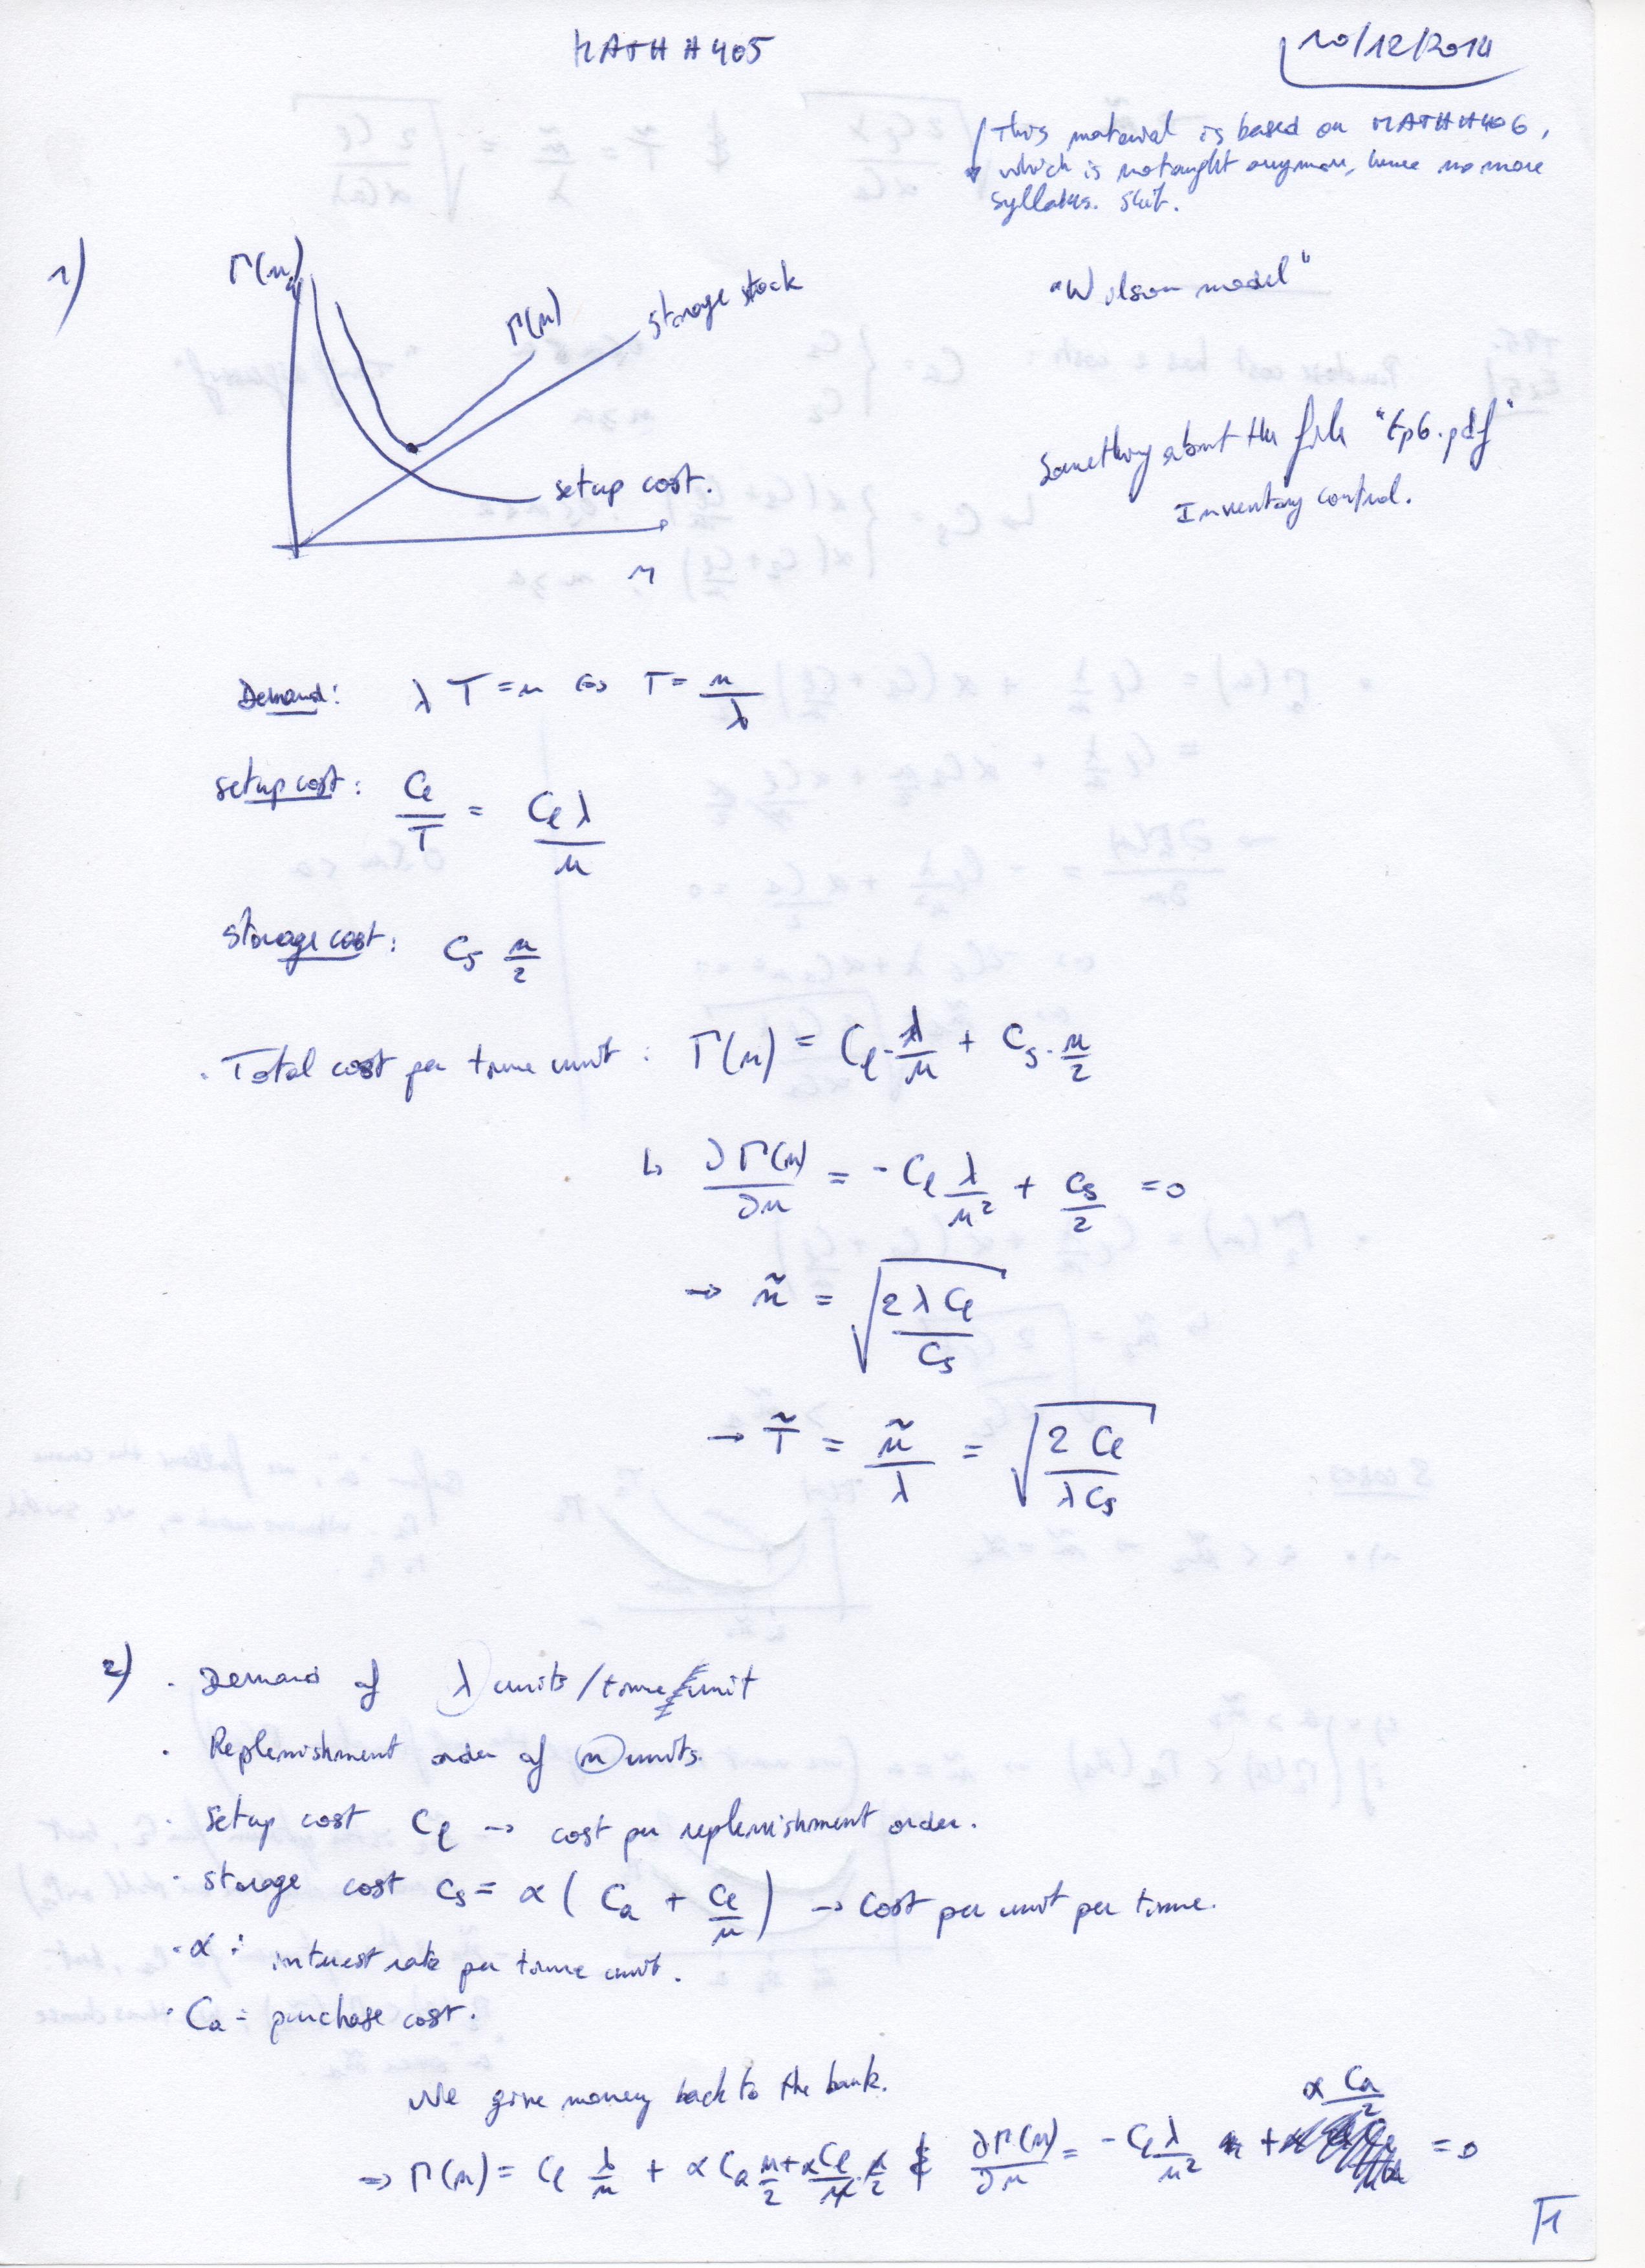 MATH H405
10/12/2014
This material is based on MATHH406,
which is not taught anymore, hence no more
syllabus. Shit.
1)
Γ(n)
Γ(n)
storage stock
"Wilson model"
setup cost.
Something about the file "tp6.pdf"
Inventory control.
n
Demand: λ T = n ⇔ T = n/λ
setup cost: Cℓ/T = Cℓ λ/n
storage cost: Cs n/2
. Total cost per time unit : Γ(n) = Cℓ · λ/n + Cs · n/2
↳ ∂Γ(n)/∂n = -Cℓ λ/n² + Cs/2 = 0
→ ñ = √(2 λ Cℓ/Cs)
→ T̃ = ñ/λ = √(2 Cℓ/λ Cs)
2) . Demand of λ units/time unit
. Replenishment order of n units.
. Setup cost Cℓ → cost per replenishment order.
. Storage cost Cs = α ( Ca + Cℓ/n ) → Cost per unit per time.
. α : interest rate per time unit.
. Ca = purchase cost.
We give money back to the bank.
α Ca/2
⇒ Γ(n) = Cℓ λ/n + α Ca n/2 + α Cℓ/n · n/2 & ∂Γ(n)/∂n = -Cℓ λ/n² + = 0
1